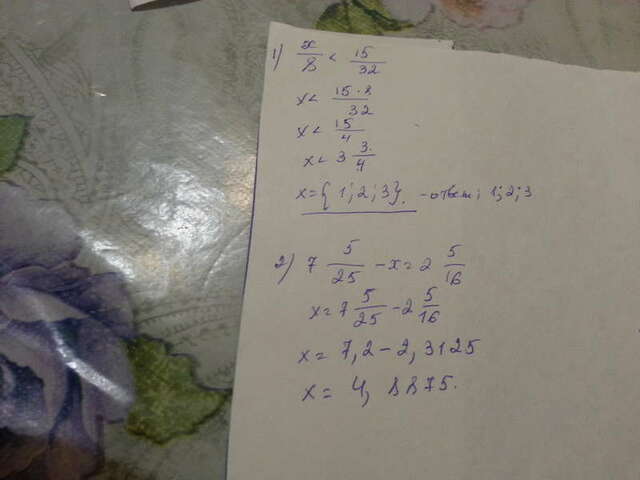 1) x/8 < 15/32
x < 15·8/32
x < 15/4
x < 3 3/4
x = {1; 2; 3}. - ответ: 1; 2; 3
2) 7 5/25 - x = 2 5/16
x = 7 5/25 - 2 5/16
x = 7,2 - 2,3125
x = 4,8875.